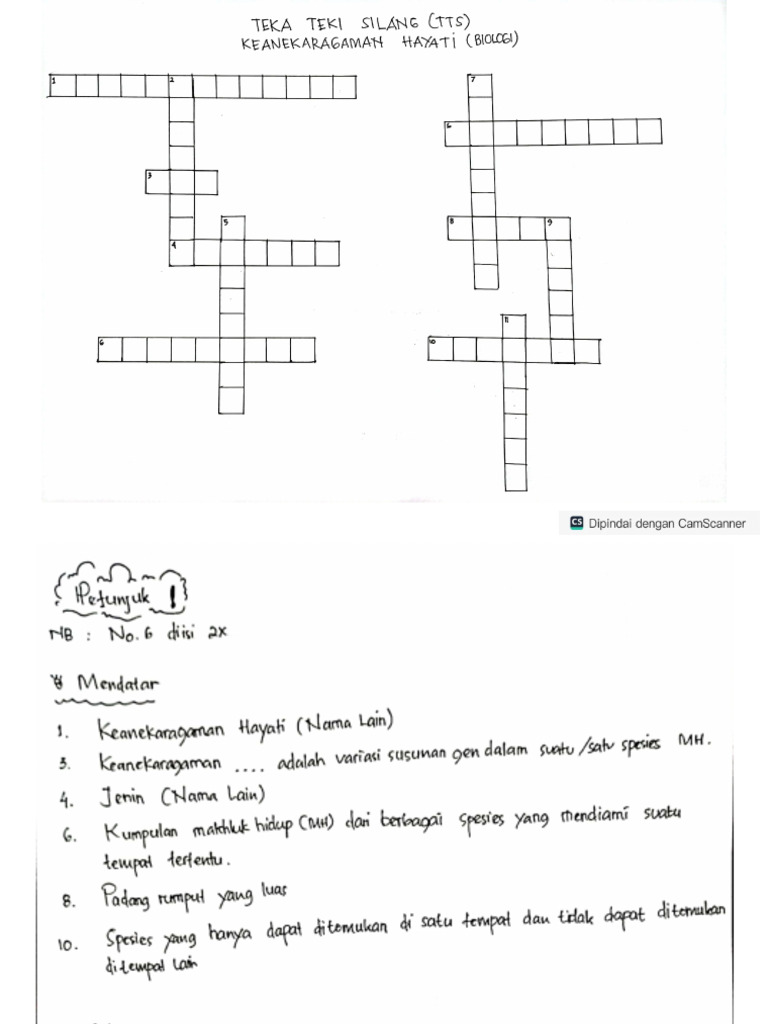 TEKA TEKI SILANG (TTS)
KEANEKARAGAMAN HAYATI (BIOLOGI)
1
2
7
6
3
5
8
9
4
11
6
10
CS Dipindai dengan CamScanner
Petunjuk !
NB : No. 6 diisi 2x
Mendatar
1. Keanekaragaman Hayati (Nama Lain)
3. Keanekaragaman .... adalah variasi susunan gen dalam suatu/satu spesies MH.
4. Jenin (Nama Lain)
6. Kumpulan makhluk hidup (MH) dari berbagai spesies yang mendiami suatu
tempat tertentu.
8. Padang rumput yang luas
10. Spesies yang hanya dapat ditemukan di satu tempat dan tidak dapat ditemukan
ditempat lain